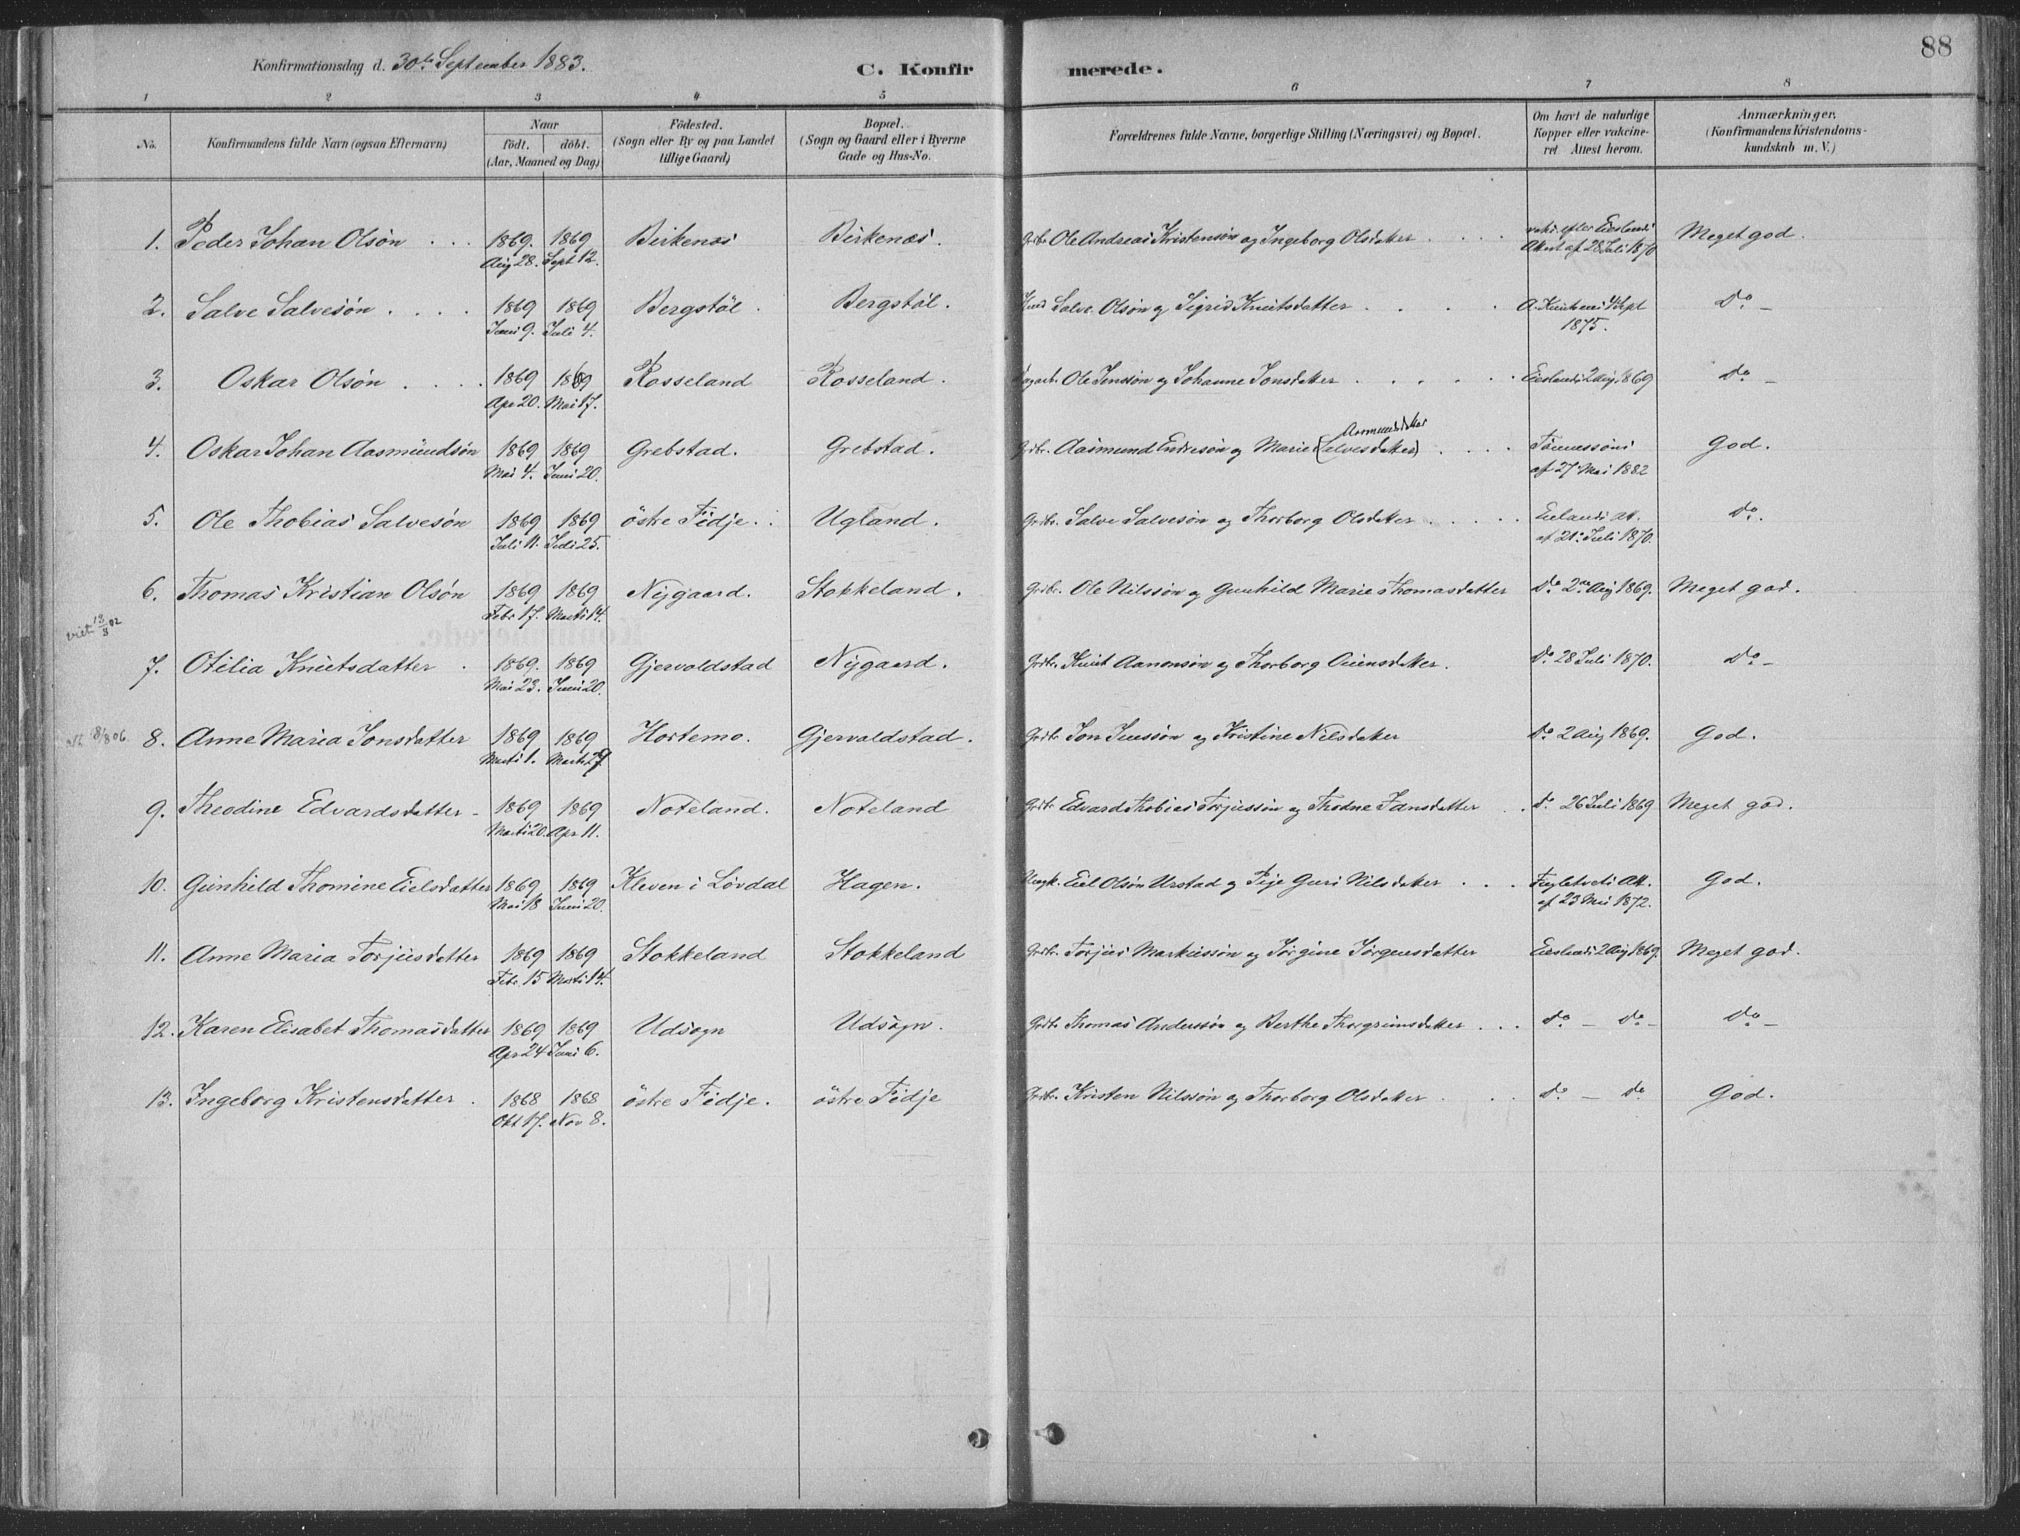 88
Konfirmationsdag d. 30te September 1883.
C. Konfir merede.
1 2 3 4 5 6 7 8
No.
Konfirmandens fulde Navn (ogsaa Efternavn)
Naar
födt. döbt.
(Aar, Maaned og Dag)
Födested.
(Sogn eller By og paa Landet
tillige Gaard)
Bopæl.
(Sogn og Gaard eller i Byerne
Gade og Hus-No.
Forældrenes fulde Navne, borgerlige Stilling (Næringsvei) og Bopæl.
Om havt de naturlige
Kopper eller vakcine-
ret Attest herom.
Anmærkninger.
(Konfirmandens Kristendoms-
kundskab m. V.)
1. Peder Johan Olsön . . . 1869. 1869 Birkenæs Birkenæs. Grbr. Ole Andreas Kristensön og Ingeborg Olsdatter . . . . vakc. efter Eieslands Meget god.
Aug 28. Sept 12. Attest af 28 Juli 1870
2. Salve Salvesön . . . . 1869 1869 Bergstöl . Bergstöl. Salve Olsön og Sigrid Knutsdatter . . . . A. Knutsens 4 Sept Do -
Juni 9. Juli 4. 1875.
3. Oskar Olsön . . . . 1869 1869 Rosseland Rosseland. Ole Jenssön og Johanne Jonsdatter . . . . . . Eieslands 2 Aug 1869 Do -
Apr 20. Mai 17.
Aasmundsdatter
4. Oskar Johan Aasmundsön 1869 1869 Grebstad. Grebstad. Grbr. Aasmund Endresön og Marie (Salvesdatter) . . . . Tönnessöns God.
Mai 4. Juni 20. af 27 Mai 1882
5. Ole Thobias Salvesön 1869 1869 östre Fidje. . Ugland. Grbr. Salve Salvesön og Thorborg Olsdatter . . . . . Eielands Att. Do.
Juli 11. Juli 25. af 21 Juli 1870.
6. Thomas Kristian Olsön 1869 1869 Nygaard. Stokkeland. Grbr. Ole Nilssön og Gunhild Marie Thomasdatter Do 2den Aug 1869. Meget god.
Febr 17. Marts 14.
viet 13/3 02
7. Otilia Knutsdatter . 1869. 1869 Gjervoldstad Nygaard. Grbr. Knut Aanonsön og Thorborg Auensdatter. Do 28 Juli 1870. Do -
Mai 23. Juni 20.
8/8 06. 8. Anne Maria Jonsdatter 1869 1869 Hortemo. Gjervoldstad. Grbr Jon Jenssön og Kristine Nilsdatter Do 2 Aug 1869. God.
Marts 1. Marts 29
9. Theodine Edvardsdatter - 1869 1869 Noteland. Noteland Grbr Edvard Thobias Torjussön og Thodne Jansdatter . . Do 26 Juli 1869 Meget god.
Marts 20. Apr 11.
10. Gunhild Thomine Eielsdatter 1869 1869 Kleven i Lövdal Hagen. Eiel Olsön Urstad og Pige Guri Nilsdatter . . . Fuglstveits Att. God.
Mai 18 Juni 20. af 23 Mai 1872.
11. Anne Maria Torjusdatter 1869 1869 Stokkeland Stokkeland Grbr. Torjus Markussön og Jörgine Jörgensdatter Eieslands 2 Aug 1869. Meget god.
Febr. 15 Marts 14.
12. Karen Elisabet Thomasdatter 1869 1869 Udsogn Udsogn. Grbr Thomas Anderssön og Berthe Thorgrimsdatter . . . do - do - Do -
Apr 24 Juni 6.
13. Ingeborg Kristensdatter . 1868 1868 östre Fidje. östre Fidje Grbr. Kristen Nilssön og Thorborg Olsdatter . . . do - do God.
Okt 17. Nov 8.